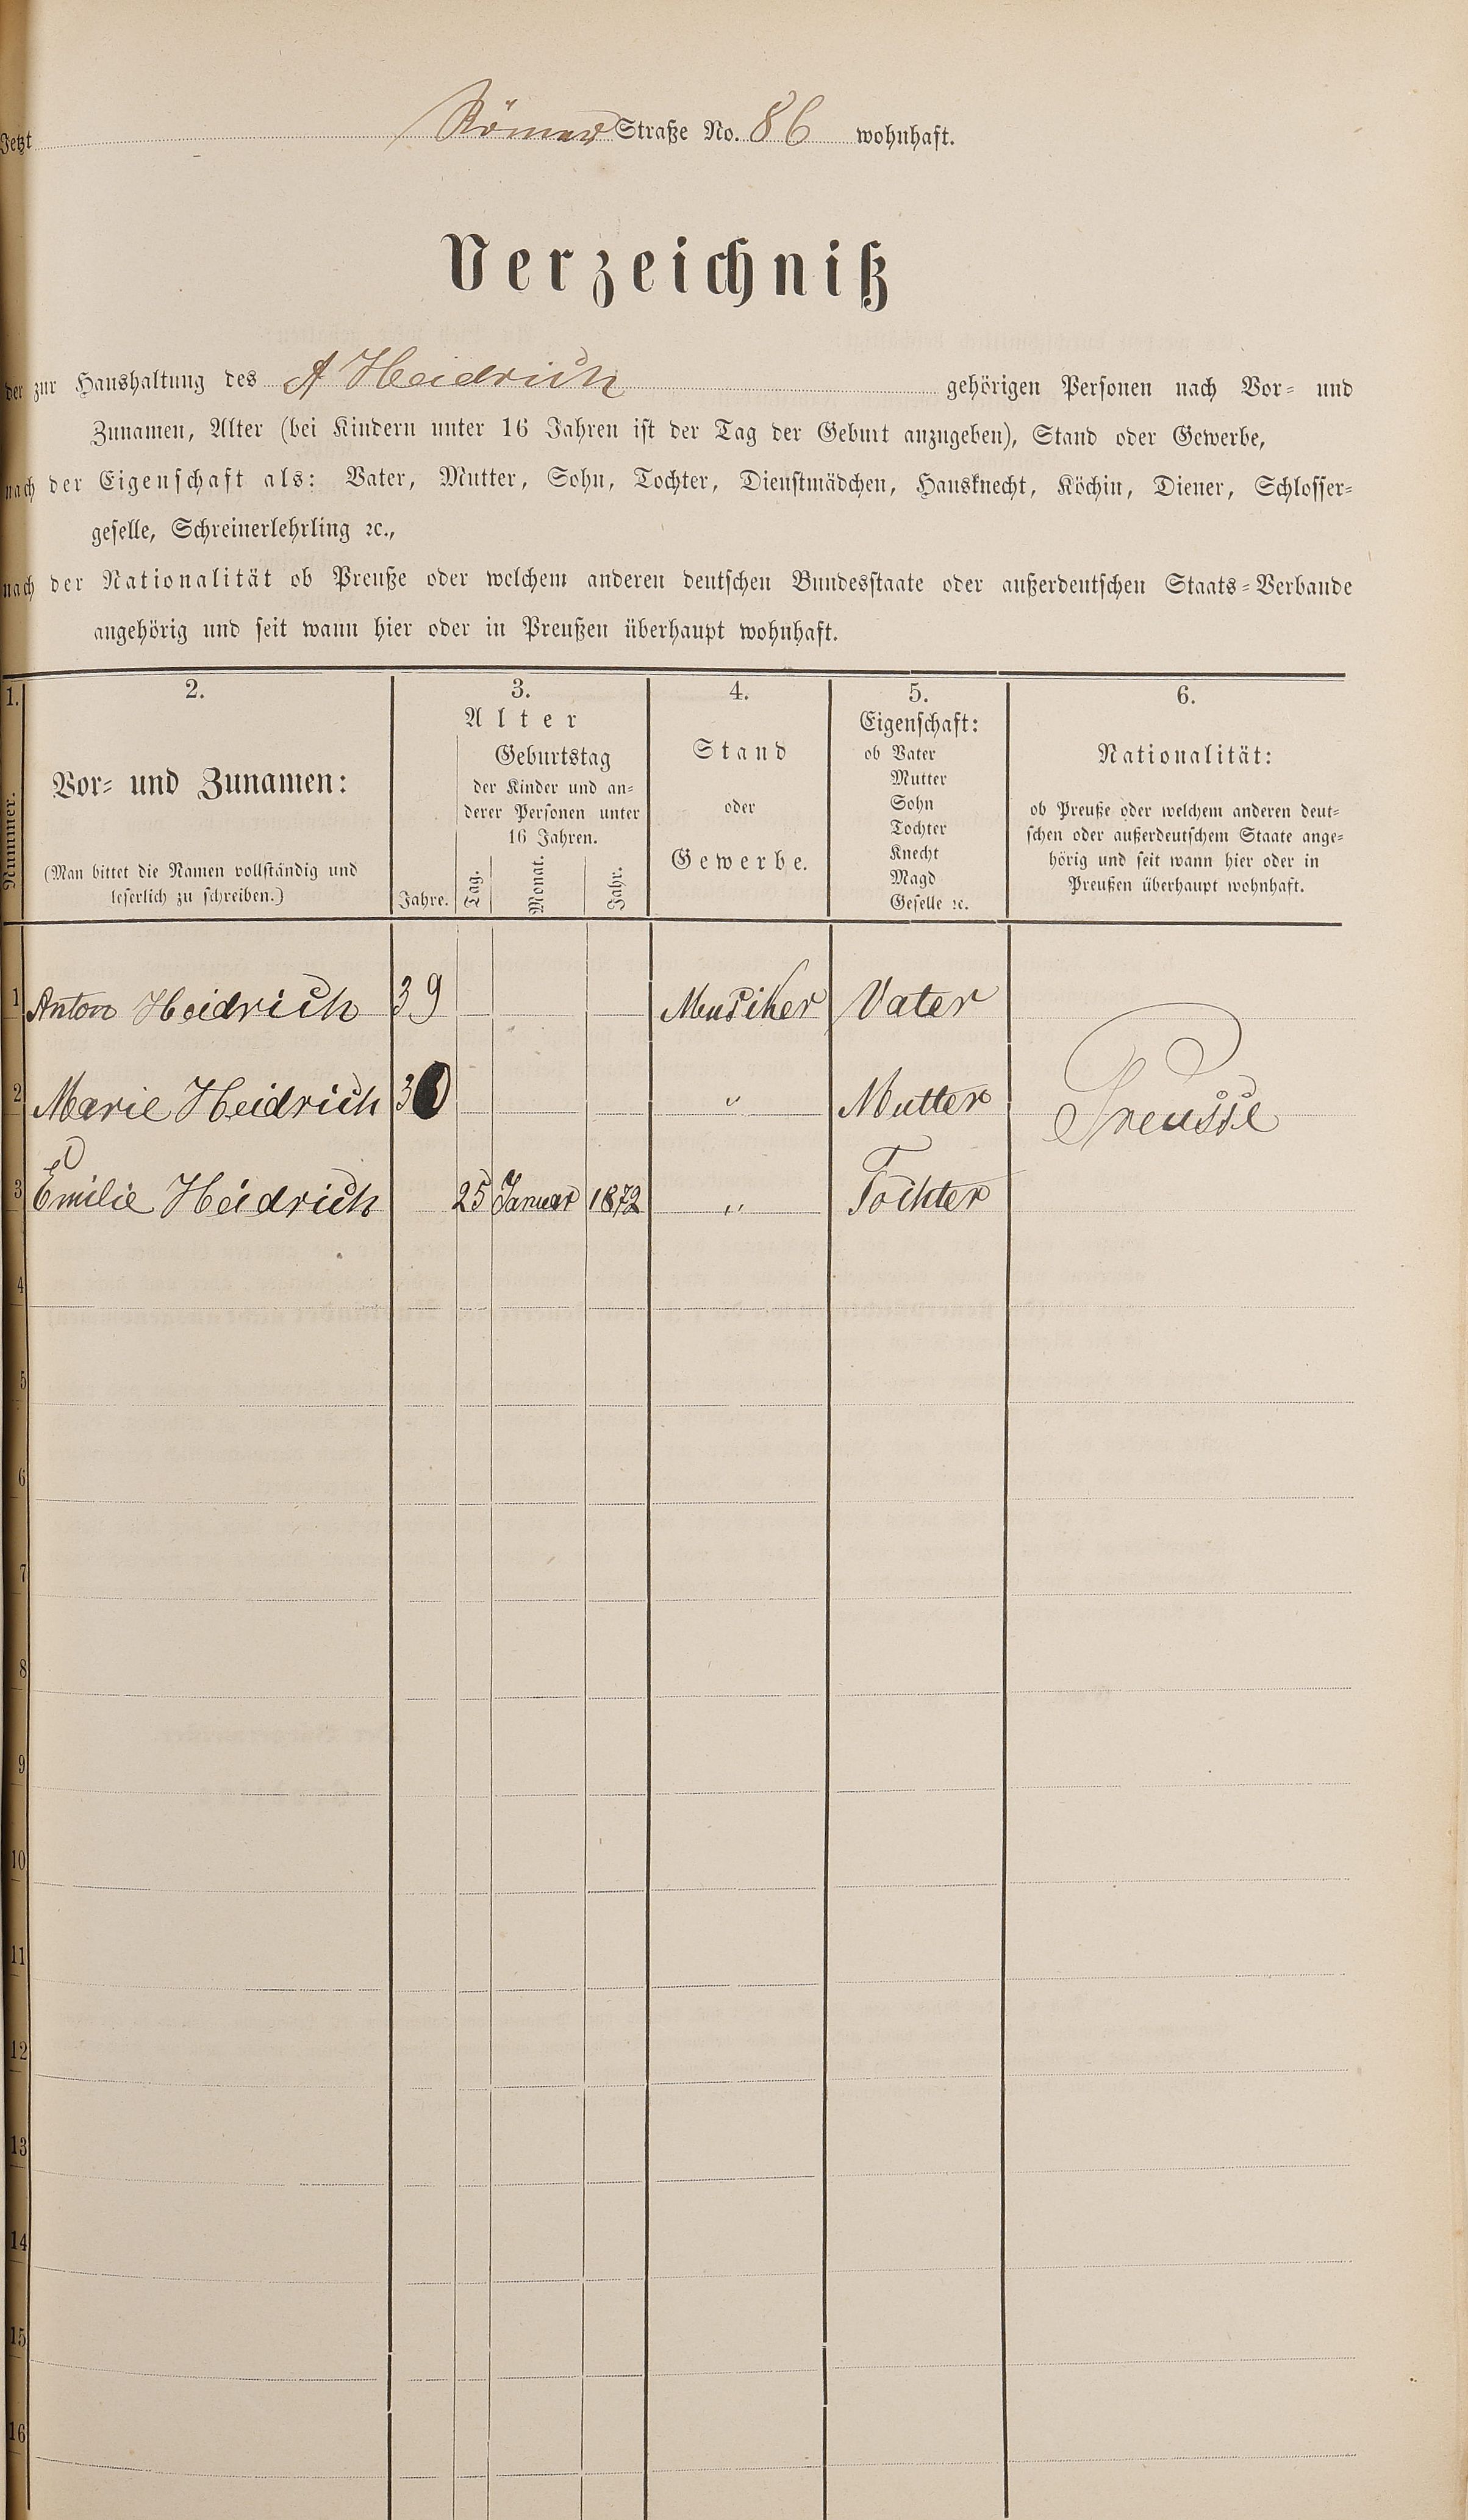 Jetzt Römer Straße No. 86 wohnhaft.
Verzeichniß
der zur Haushaltung des A Heidrich gehörigen Personen nach Vor- und
Zunamen, Alter (bei Kindern unter 16 Jahren ist der Tag der Geburt anzugeben), Stand oder Gewerbe,
nach der Eigenschaft als: Vater, Mutter, Sohn, Tochter, Dienstmädchen, Hausknecht, Köchin, Diener, Schlosser-
geselle, Schreinerlehrling ꝛc.,
nach der Nationalität ob Preuße oder welchem anderen deutschen Bundesstaate oder außerdeutschen Staats-Verbande
angehörig und seit wann hier oder in Preußen überhaupt wohnhaft.
1.
Nummer.
2.
Vor- und Zunamen:
(Man bittet die Namen vollständig und
leserlich zu schreiben.)
3.
Alter
Jahre.
Geburtstag
der Kinder und an-
derer Personen unter
16 Jahren.
Tag.
Monat.
Jahr.
4.
Stand
oder
Gewerbe.
5.
Eigenschaft:
ob Vater
Mutter
Sohn
Tochter
Knecht
Magd
Geselle ꝛc.
6.
Nationalität:
ob Preuße oder welchem anderen deut-
schen oder außerdeutschem Staate ange-
hörig und seit wann hier oder in
Preußen überhaupt wohnhaft.
1 Anton Heidrich 39 Musiker Vater
2 Marie Heidrich " Mutter Preusse
3 Emilie Heidrich 25 Januar 1872 " Tochter
4
5
6
7
8
9
10
11
12
13
14
15
16